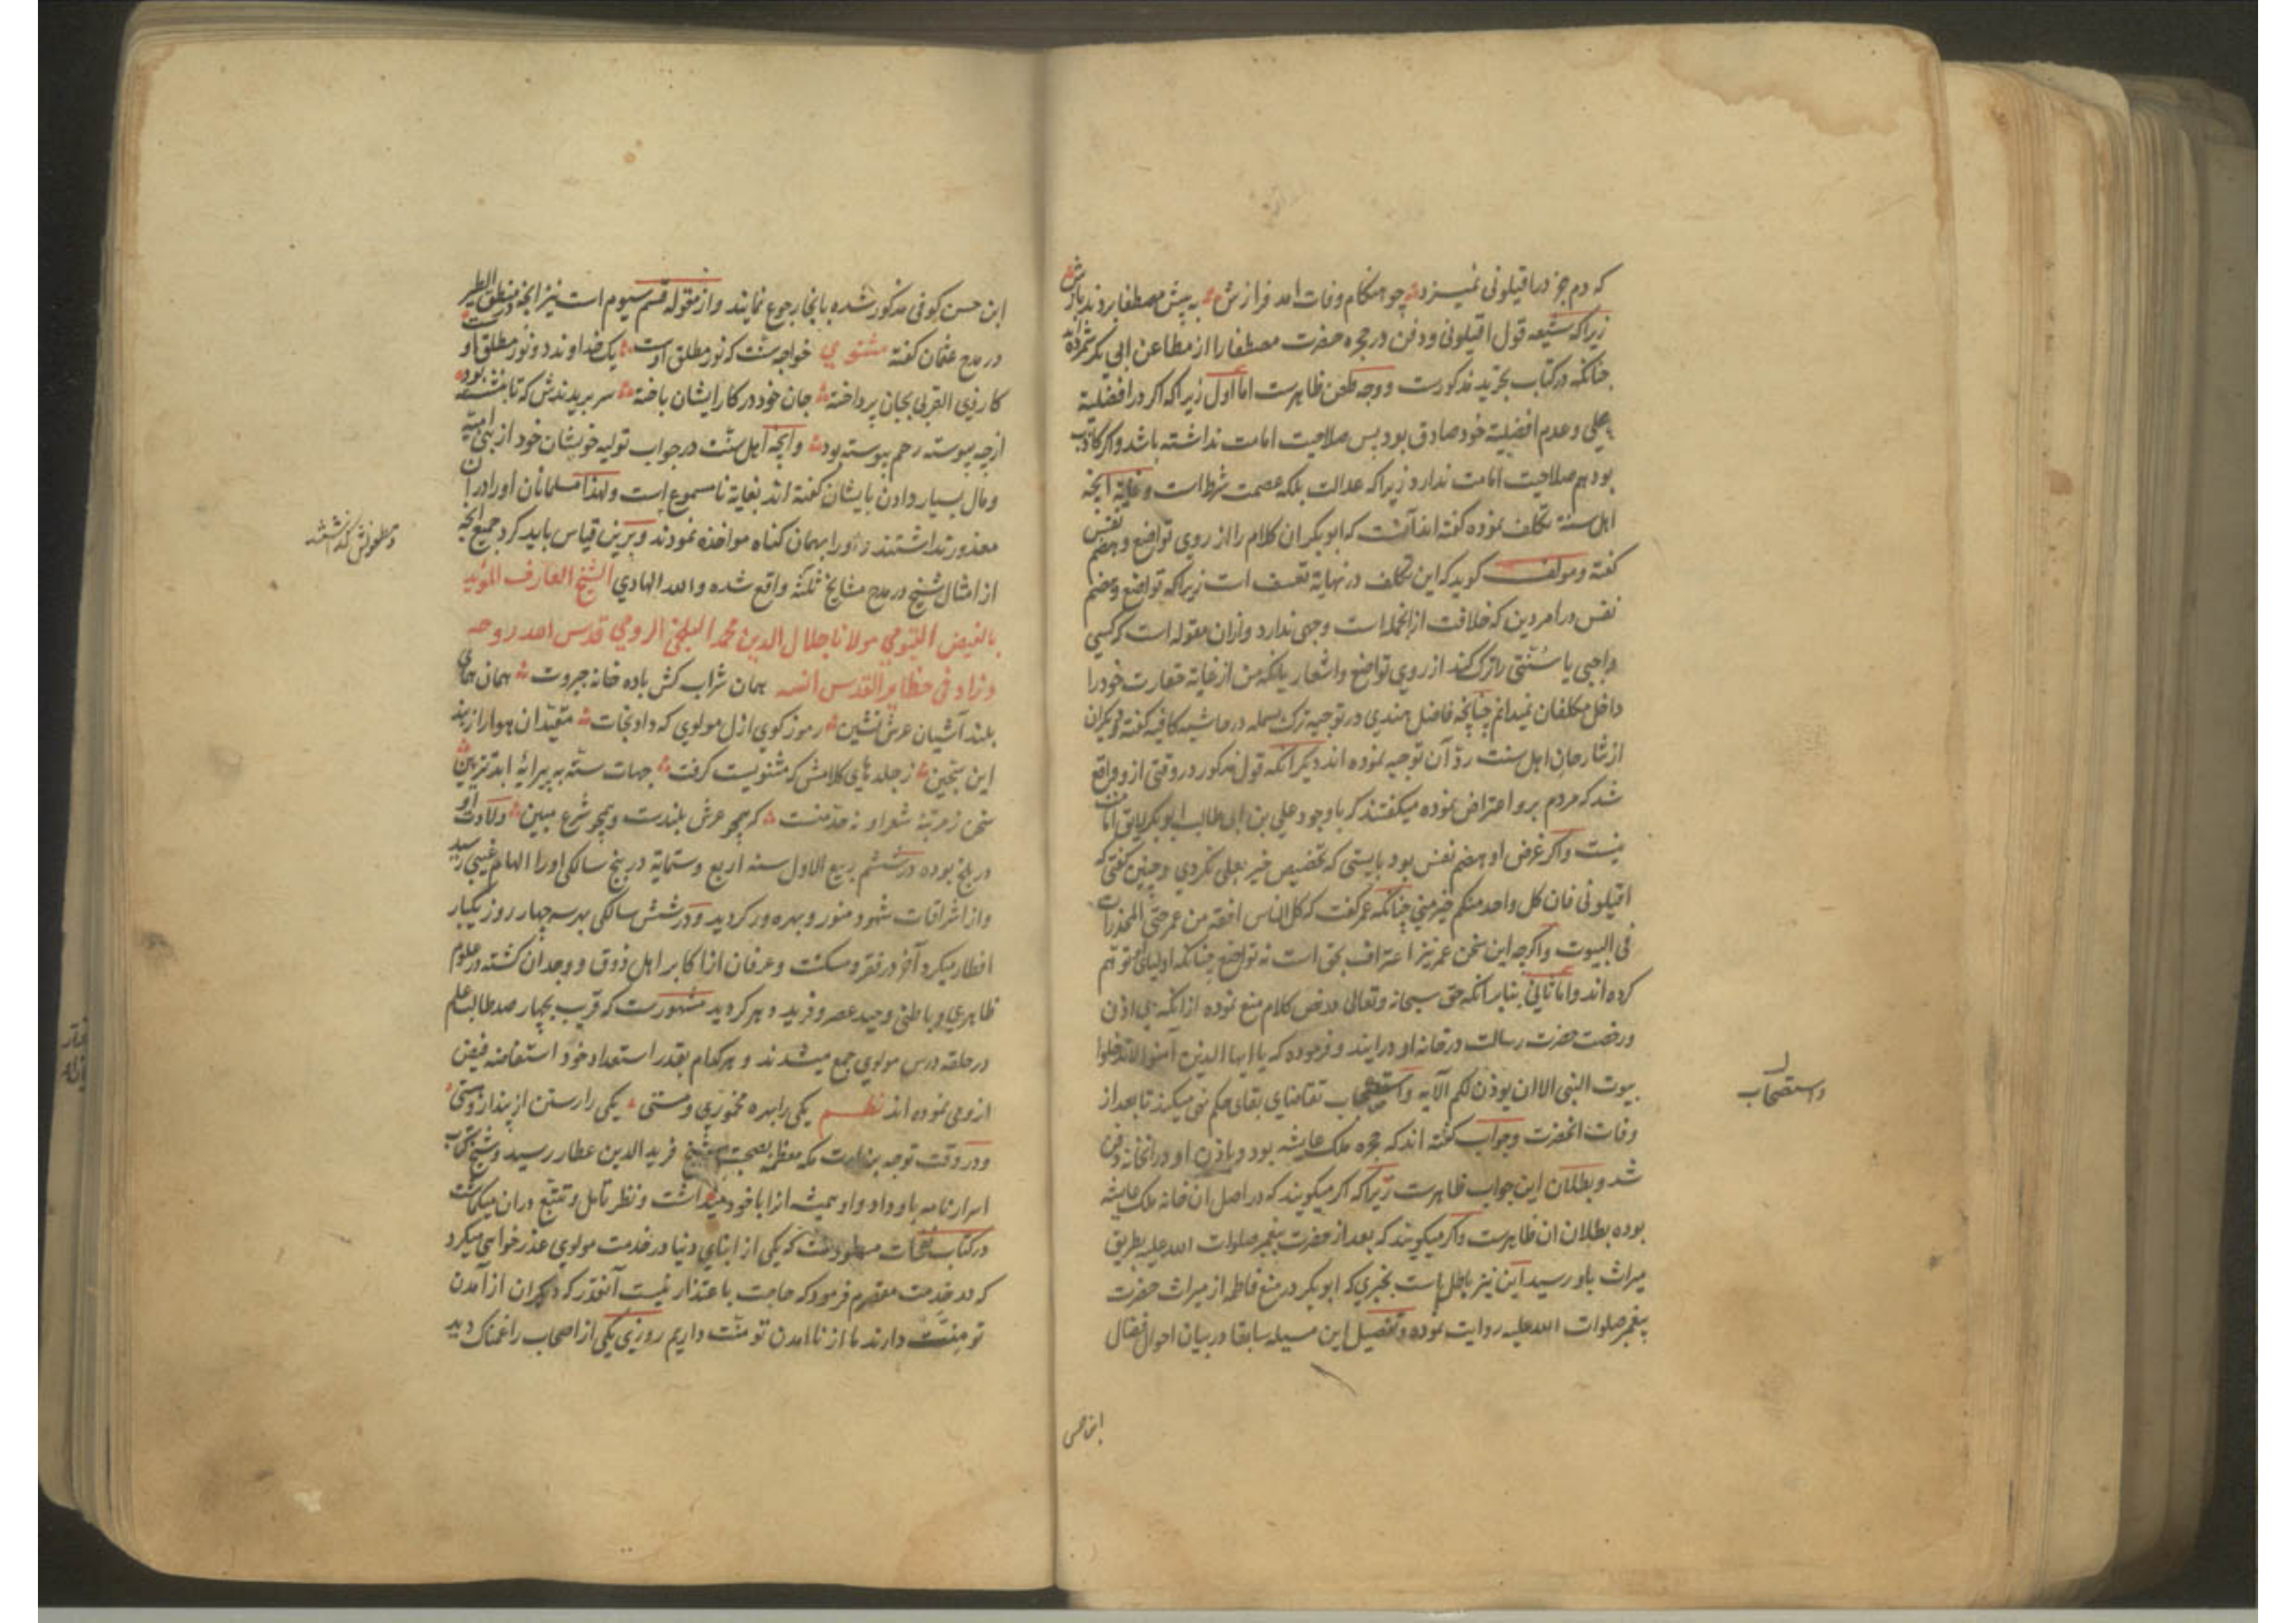 که دم جز در اقیلونی نمیزد چو هنگام وفات امد فرازش به پیش مصطفا بردند بازش
زیراکه شیعه قول اقیلونی ودفن در حجره حضرت مصطفا را از مطاعن ابی بکر شمرده اند
چنانکه در کتاب تجرید مذکورست ووجه طعن ظاهرست اما اول زیراکه اکر در افضلیة
علی وعدم افضلیة خود صادق بود پس صلاحیت امامت نداشته باشد واکر کاذب
بود هم صلاحیت امامت ندارد زیراکه عدالت بلکه عصمت شرط است وغایة آنچه
اهل سنة تکلف نموده کفته اند آنست که ابو بکر ان کلام را از روی تواضع وهضم نفس
کفته ومولف کوید که این تکلف در نهایة تعسف است زیراکه تواضع وهضم
نفس در امر دین که خلافت از انجمله است وجهی ندارد وازان مقوله است که کسی
واجبی یا سنتی را ترک کند از روی تواضع واشعار بانکه من از غایة حقارت خود را
داخل مکلفان نمیدانم چنانچه فاضل هندی در توجیه ترک بسمله در حاشیه کافیه کفته ودیکران
از شارحان اهل سنت رد آن توجیه نموده اند دیکر آنکه قول مذکور در وقتی ازو واقع
شد که مردم برو اعتراض نموده میکفتند که با وجود علی بن ابی طالب ابو بکر لایق امامت
نیست واکر غرض او هضم نفس بود بایستی که تخصیص خیر بعلی نکردی وچنین کفتی که
اقیلونی فان کل واحد منکم خیر منی چنانکه عمر کفت که کل الناس افقه من عمر حتی المخدرات
فی البیوت واکرچه این سخن عمر نیز اعتراف بحق است نه تواضع چنانکه اولیای او توهم
کرده اند واما ثانی بنابر انکه حق سبحانه وتعالی در نص کلام منع نموده از انکه بی اذن
ورخصت حضرت رسالت در خانه او درایند وفرموده که یا ایها الذین آمنوا لا تدخلوا
بیوت النبی الا ان یوذن لکم الآیه واستصحاب تقاضای بقای حکم نهی میکند تا بعد از
واستصحاب
وفات انحضرت وجواب کفته اند که حجره ملک عایشه بود وباذن او در انخانه دفن
شد وبطلان این جواب ظاهرست زیراکه اکر میکویند که در اصل ان خانه ملک عایشه
بوده بطلان ان ظاهرست واکر میکویند که بعد از حضرت پیغمبر صلوات الله علیه بطریق
میراث باو رسید این نیز باطل است بخبری که ابو بکر در منع فاطمه از میراث حضرت
پیغمبر صلوات الله علیه روایت نموده وتفصیل این مسیله سابقا در بیان احوال فضال
ابن حسن
ابن حسن کوفی مذکور شده بانجا رجوع نمایند واز مقوله قسم سیوم است نیز انچه در منطق الطیر
در مدح عثمان کفته مثنوی خواجه سنت که نور مطلق اوست یک خداوند دو نور مطلق او
کار ذی القربی بجان پرداخته جان خود در کار ایشان باخته سر بریدندش که تا بنشسته بود
ازچه پیوسته رحم پیوسته بود وانچه اهل سنت در جواب تولیه خویشان خود از بنی امیه
ومال بسیار دادن بایشان کفته اند بغایة نامسموع است ولهذا مسلمانان او را در ان
معذور نداشتند واورا بهمان کناه مواخذه نمودند وبرین قیاس باید کرد جمیع انچه
از امثال شیخ در مدح مشایخ ثلثه واقع شده والله الهادی الشیخ العارف المؤید
بالفیض القیومی مولانا جلال الدین محمد البلخی الرومی قدس الله روحه
وزاد فی حظایر القدس انسه همان شراب کش باده خانه جبروت همان همای
بلند آشیان عرش نشین رموز کوی ازل مولوی که داد نجات مقیدان هوا را ز بند
این سجین ز جلدهای کلامش که مثنویست کرفت جهات سته به پیرایه ابد تزیین
سخن ز مرتبه شعر او نه حد منست که همچو عرش بلندست وهمچو شرع مبین ولادت او
در بلخ بوده در ششم ربیع الاول سنه اربع وستمایة در پنج سالکی اورا الهام غیبی رسید
واز اشراقات شهود منور وبهره ور کردید ودر شش سالکی به سه چهار روز یکبار
افطار میکرد آخر در فقر ومسکنت وعرفان از اکابر اهل ذوق ووجدان کشته در علوم
ظاهری وباطنی وحید عصر وفرید دهر کردید مشهورست که قریب بچهار صد طالب علم
در حلقه درس مولوی جمع میشدند وهر کدام بقدر استعداد خود استفاضه فیض
از وی نموده اند نظم یکی را بهره مخموری ومستی یکی را رستن از پندار وهستی
ودر وقت توجه بزیارت مکه معظمه بصحبت شیخ فرید الدین عطار رسید وشیخ کتاب
اسرارنامه باو داد واو همیشه انرا با خود میداشت ونظر تامل وتتبع دران میکماشت
در کتاب نفحات مسطورست که یکی از ابنای دنیا در خدمت مولوی عذر خواهی میکرد
که در خدمت مقصرم فرمود که حاجت باعتذار نیست آنقدر که دیکران از آمدن
تو منت دارند ما از ناامدن تو منت داریم روزی یکی از اصحاب را غمناک دید